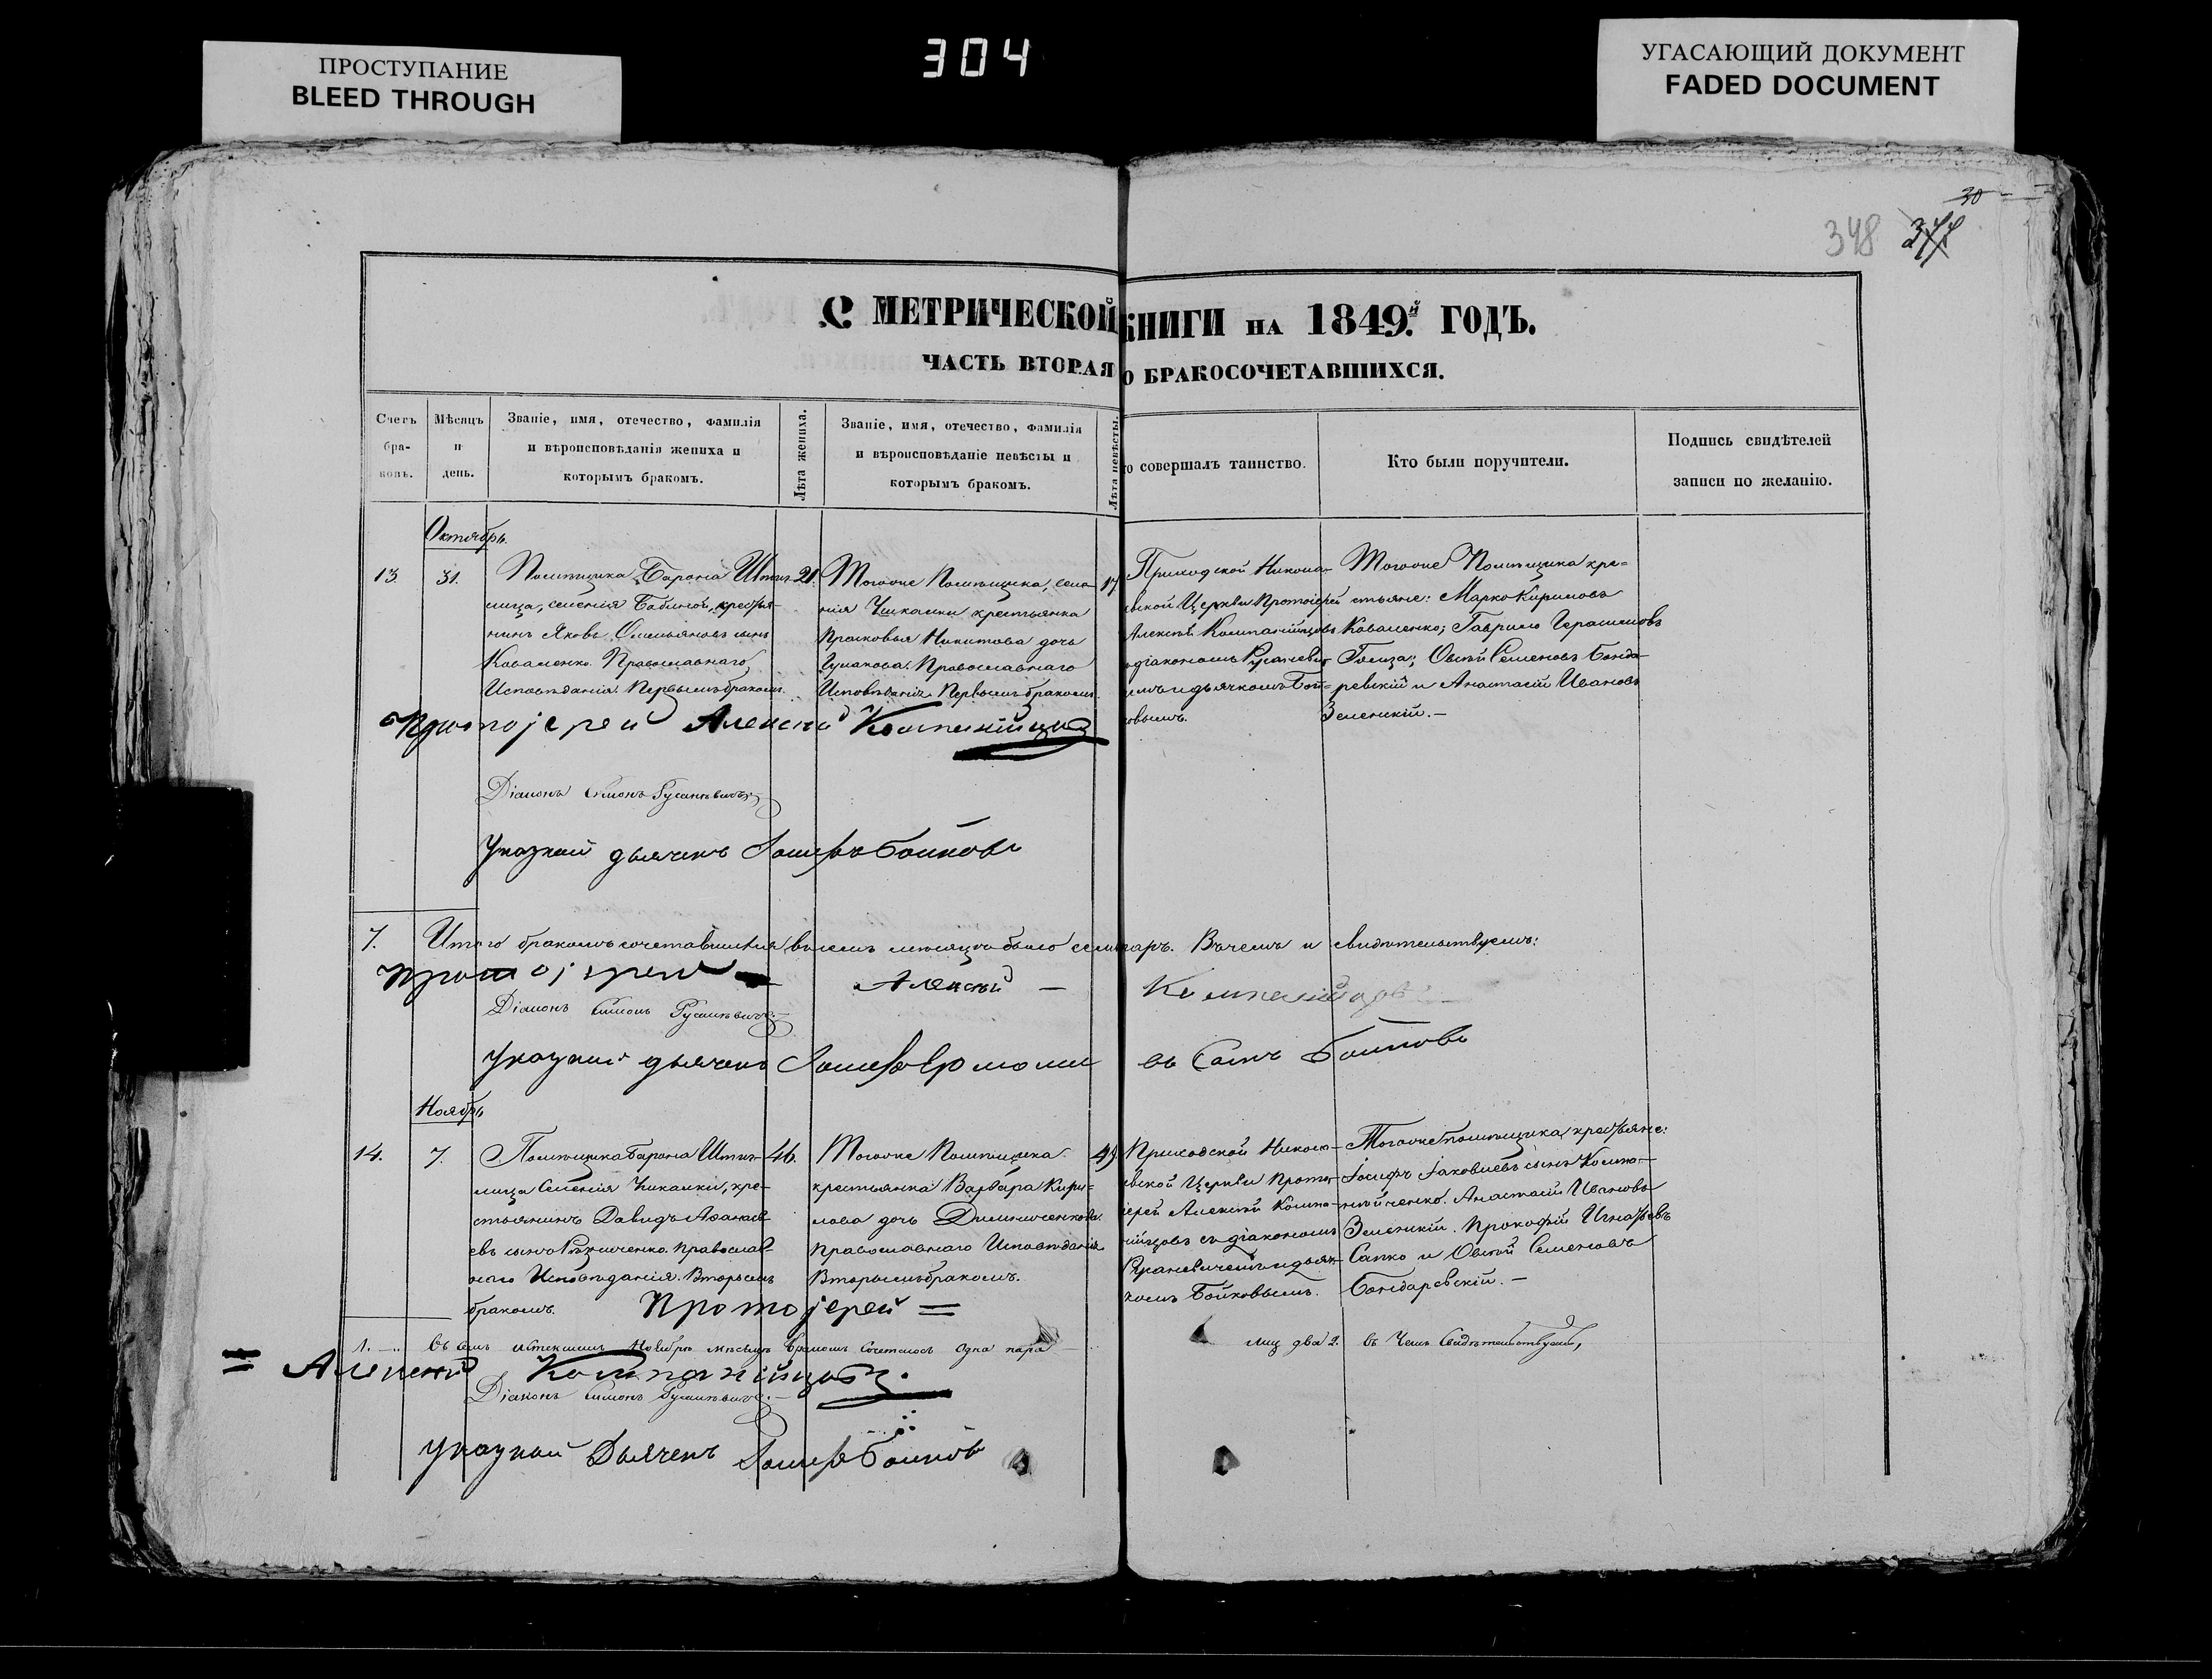 ПРОСТУПАНИЕ
BLEED THROUGH
304
УГАСАЮЩИЙ ДОКУМЕНТ
FADED DOCUMENT
30
348 377
МЕТРИЧЕСКОЙ КНИГИ НА 1849.й ГОДЪ.
ЧАСТЬ ВТОРАЯ О БРАКОСОЧЕТАВШИХСЯ.
Счетъ
бра-
ковъ.
Мѣсяцъ
и
день.
Званіе, имя, отечество, фамилія
и вѣроисповѣданія жениха и
которымъ бракомъ.
Лѣта жениха.
Званіе, имя, отечество, фамилія
и вѣроисповѣданіе невѣсты и
которымъ бракомъ.
Лѣта невѣсты.
то совершалъ таинство.
Кто были поручители.
Подпись свидѣтелей
записи по желанію.
Октябрь
13
31.
Помѣщика Барона Штиг-
лица, селенія Бабиной, крестья-
нинъ Яковъ Омельяновъ сынъ
Коваленко. Православнаго
Исповѣданія. Первымъ бракомъ.
21.
Тогоже Помѣщика, селе-
нія Чикалки крестьянка
Прасковья Никитова дочь
Чумакова. Православнаго
Исповѣданія. Первымъ бракомъ.
17.
Приходской Никола-
евской Церкви Протоіерей
Алексѣй Компанійцовъ
діакономъ Русаневич-
имъ и дьячкомъ Бой-
ковымъ.
Тогоже Помѣщика кре=
стьяне: Марко Кириловъ
Коваленко; Гаврило Герасимовъ
Овсѣй Семеновъ Бонда-
ревскій и Анастасій Ивановъ
Зеленскій.—
Протоіерей Алексѣй Компанійцовъ
Діаконъ Симонъ Русаневичъ
Указной дьячекъ Іосифъ Бойковъ
7.
Итого бракомъ сочетавшихся въ семъ мѣсяцѣ было семь паръ. Въ чемъ и свидѣтельствуемъ:
Протоіерей Алексѣй — Компанійцовъ
Діаконъ Симонъ Русаневичъ
Указной дьячекъ Іосифъ Ермолаевъ Сынъ Бойковъ
Ноябрь
14.
7.
Помѣщика Барона Штиг-
лица Селенія Чикалки, кре-
стьянинъ Давидъ Афанасі-
евъ сынъ православ-
наго Исповѣданія. Вторымъ
бракомъ.
46.
Тогоже Помѣщика
крестьянка Варвара Кири=
лова дочь
Православнаго Исповѣданія
Вторымъ бракомъ.
Приходской Никола-
евской Церкви Прото-
іерей Алексѣй Компа-
нійцовъ съ діакономъ
Русаневичемъ и дьяч-
комъ Бойковымъ.
Тогоже помѣщика крестьяне:
Іосифъ Іаковлевъ сынъ Компа-
нійченко. Анастасій Ивановъ
Зеленскій. Прокофій Игнатьевъ
Сапко и Овсѣй Семеновъ
Бондаревскій.—
Протоіерей =
1.
Въ семъ истекшемъ Ноябрѣ мѣсяцѣ бракомъ Сочеталось одна пара — лиц два 2. въ Чемъ Свидѣтельствуемъ,
= Алексѣй Компанійцовъ.
Діаконъ Симонъ Русаневичъ.—
Указной Дьячекъ Іосифъ Бойковъ